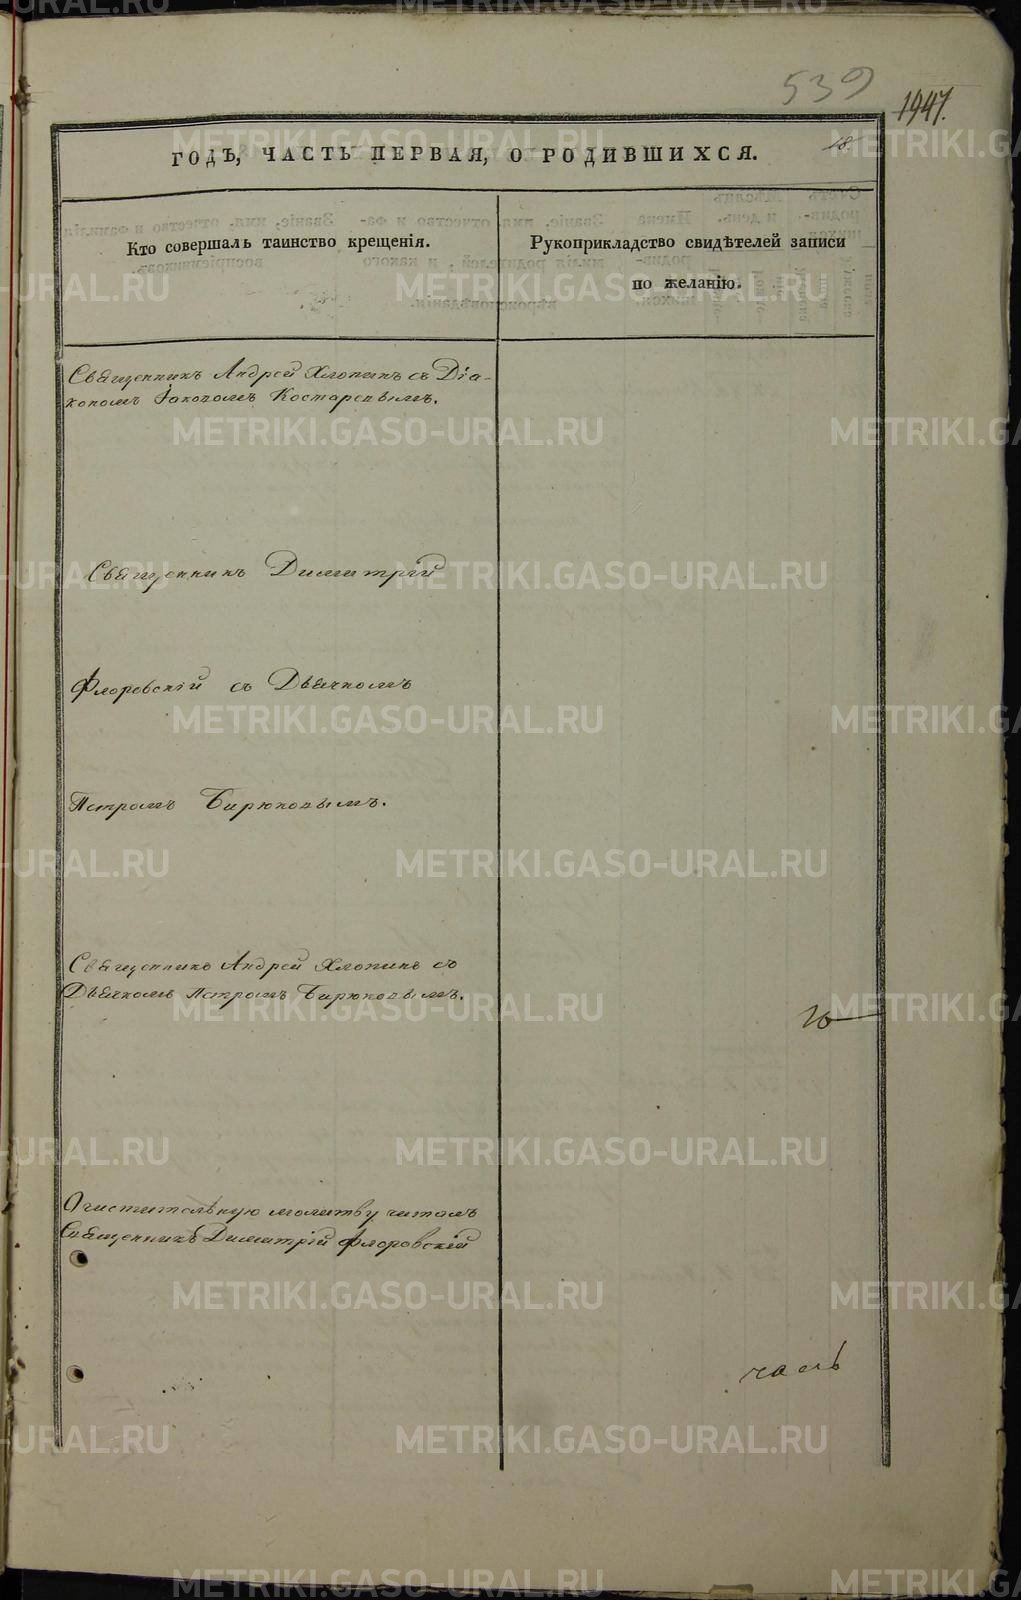 539
1947.
18
ГОДЪ, ЧАСТЬ ПЕРВАЯ, О РОДИВШИХСЯ.
Кто совершалъ таинство крещенія.
Рукоприкладство свидѣтелей записи
по желанію.
Священникъ Андрей Хлопинъ съ Діа-
кономъ Іаковомъ Костаревымъ.
Священникъ Димитрій
Флоровскій съ Дьячкомъ
Петромъ Бирюковымъ.
Священникъ Андрей Хлопинъ съ
Дьячкомъ Петромъ Бирюковымъ.
Очистительную молитву читалъ
Священникъ Димитрій Флоровскій
METRIKI.GASO-URAL.RU